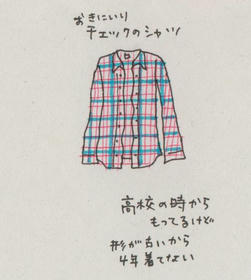 おきにいり
チェックのシャツ
高校の時から
もってるけど
形が古いから
4年着てない